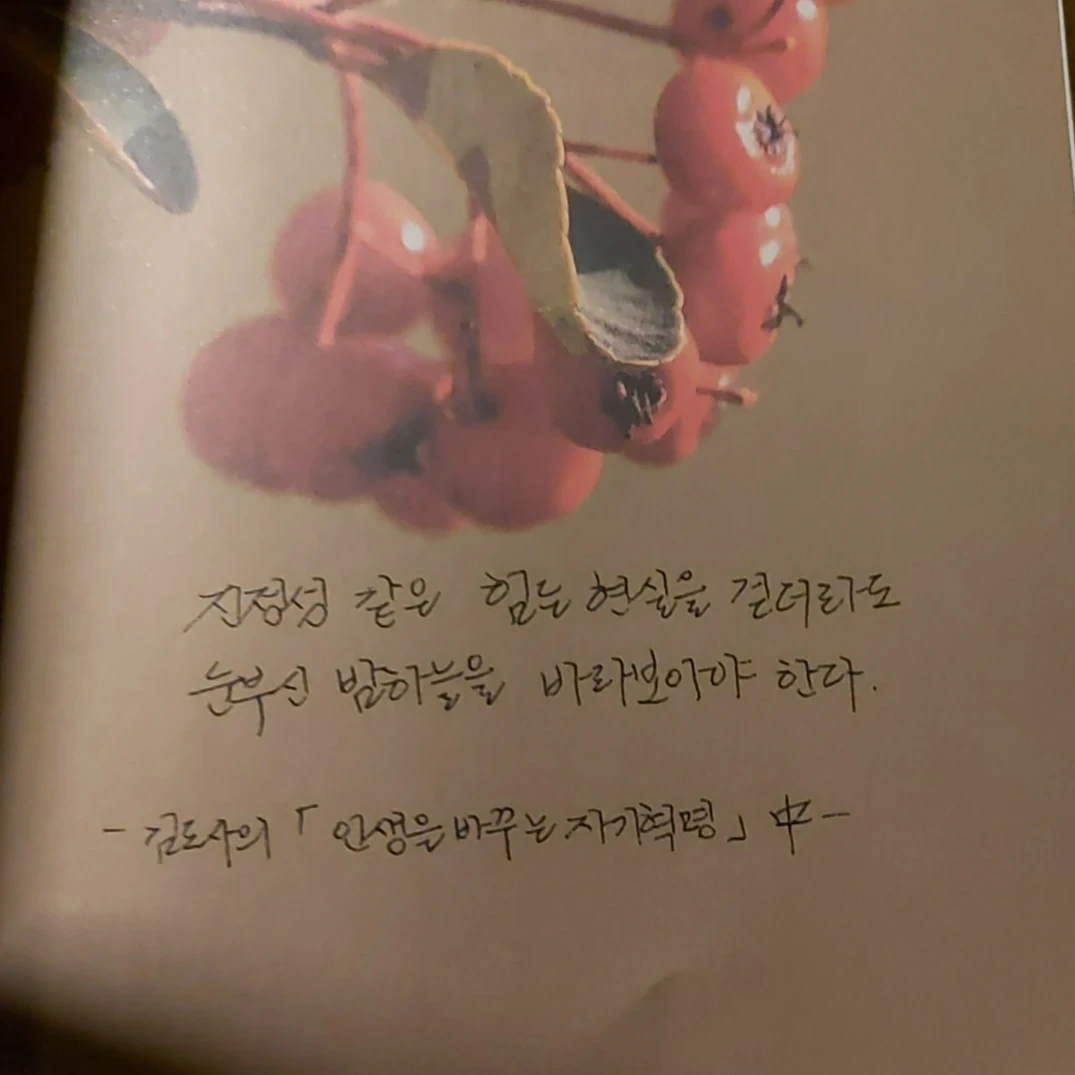 진정성 같은 힘든 현실을 걷더라도
눈부신 밤하늘을 바라보아야 한다.
- 김도사의 「인생을 바꾸는 자기혁명」 中 -